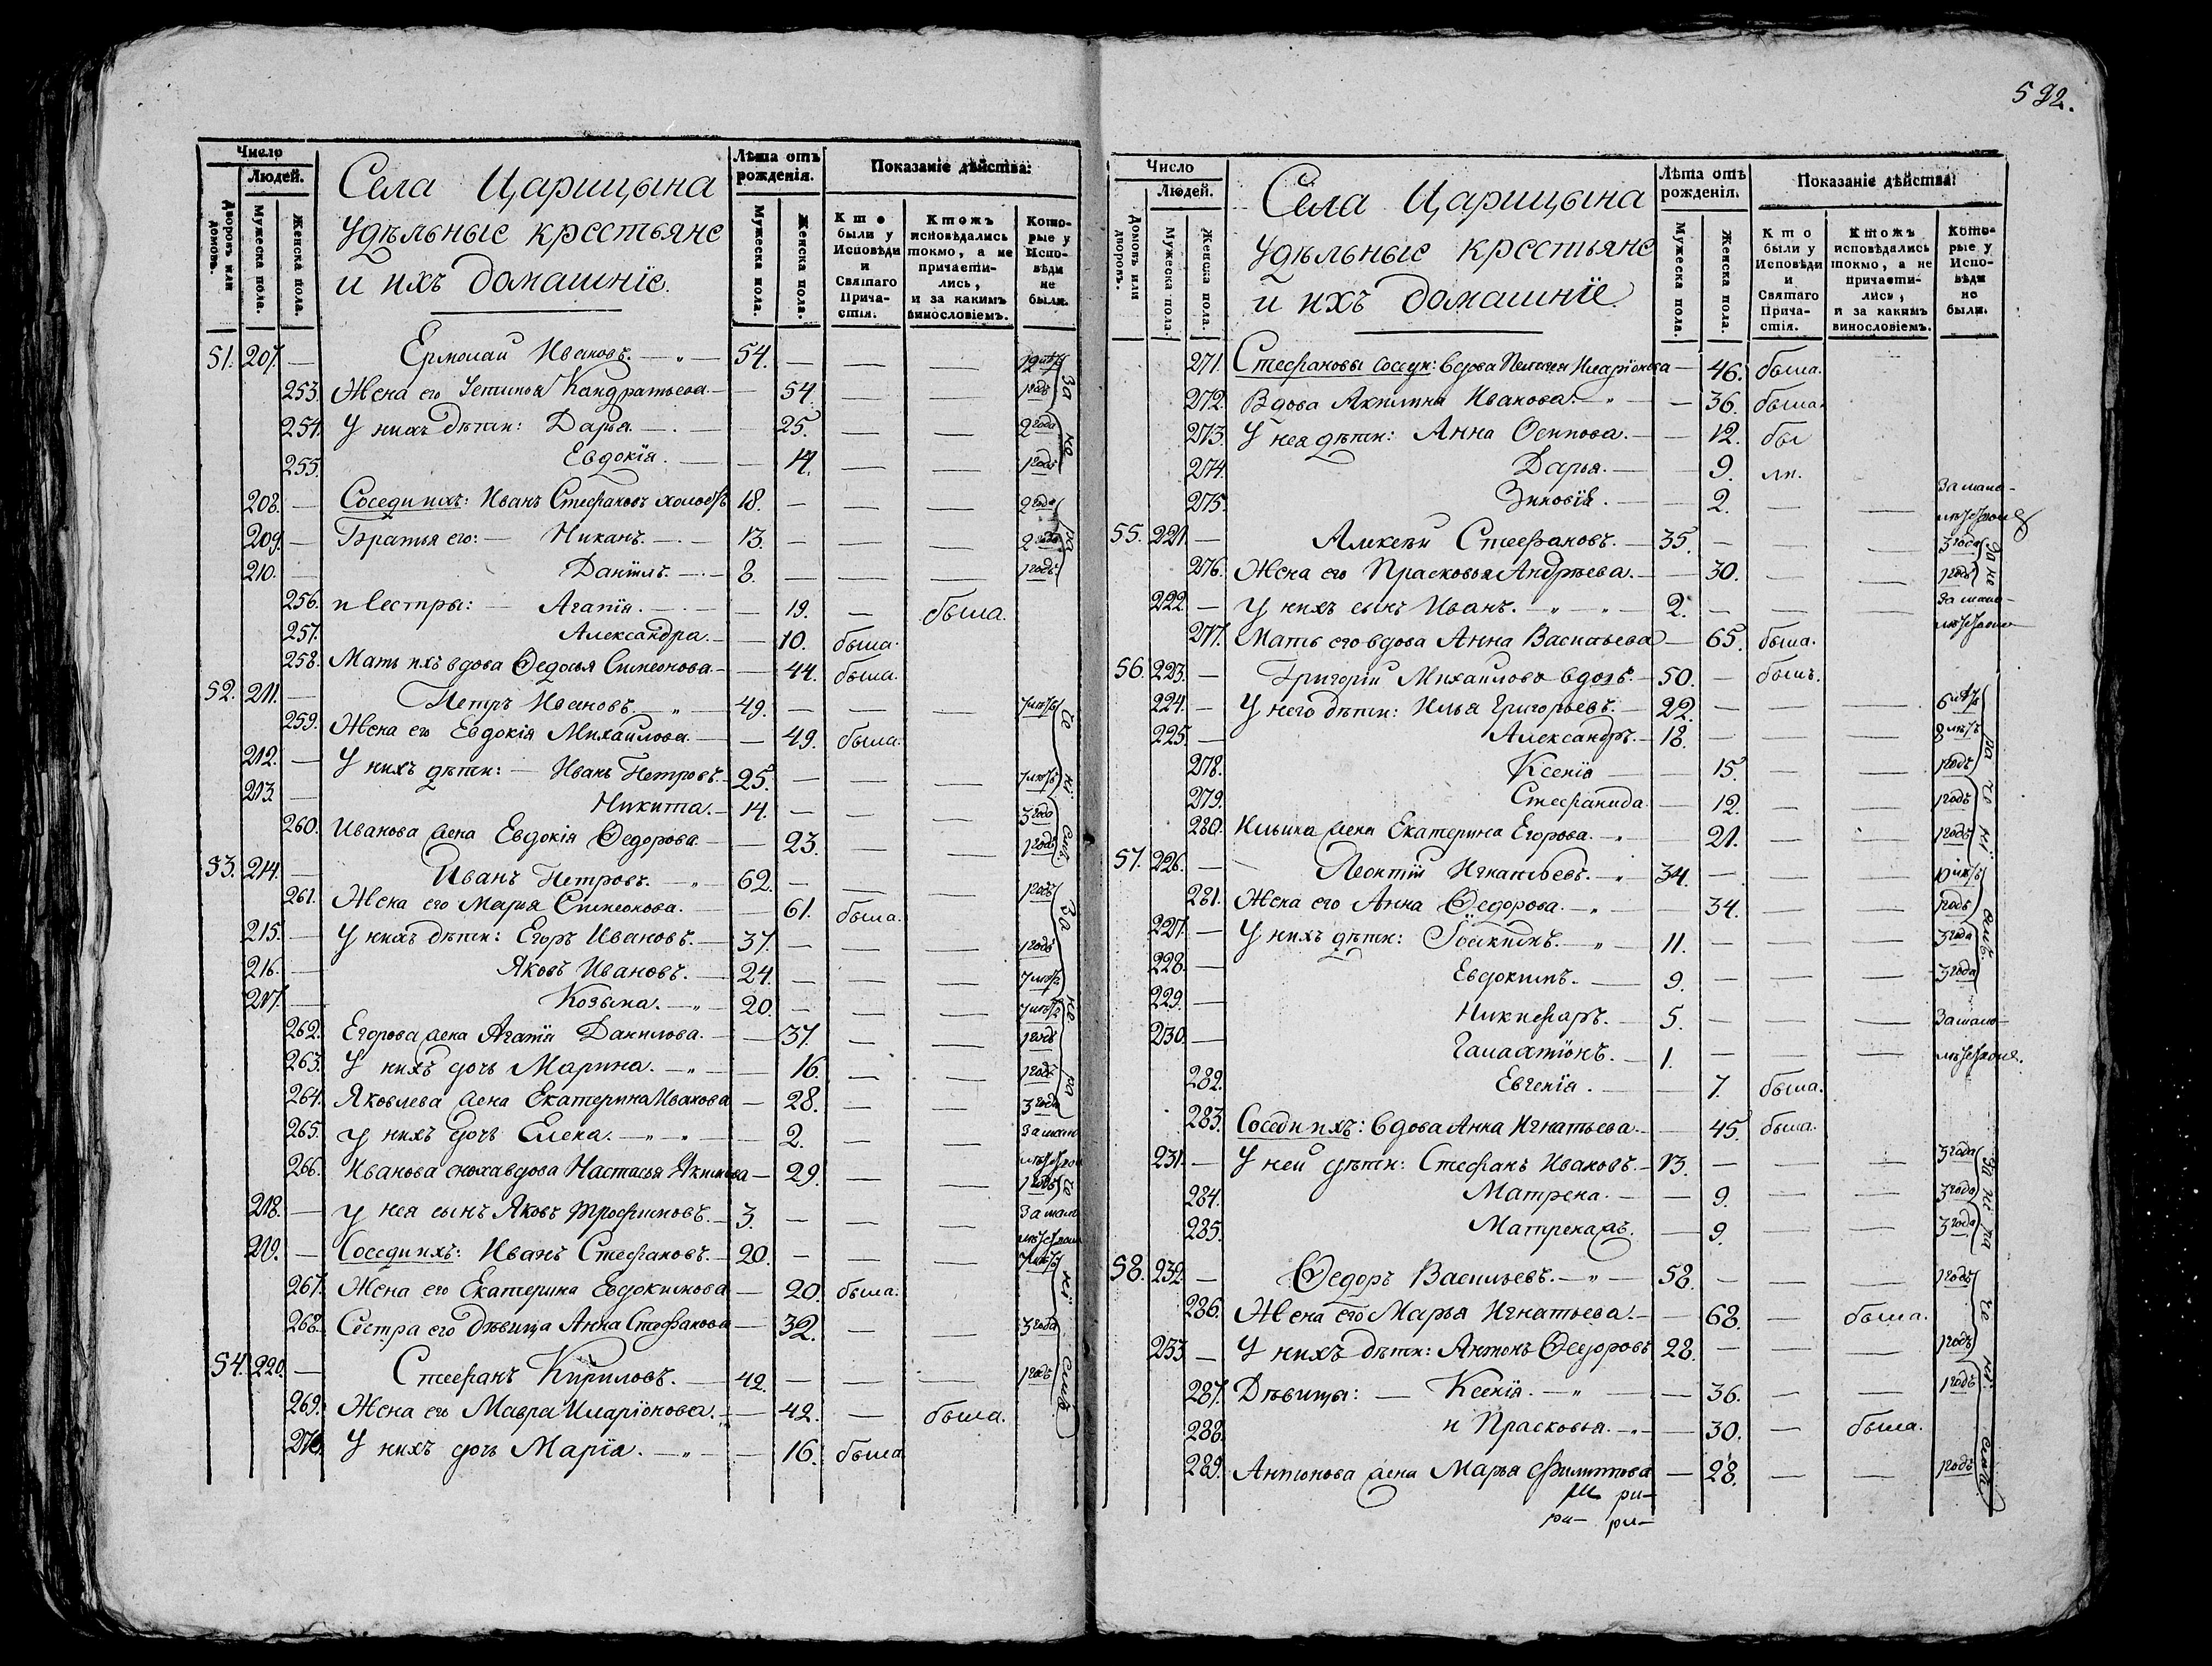 592.
Число
Людей.
Дворовъ или домовъ.
Мужеска пола.
Женска пола.
Села Царицына
Удѣльные крестьяне
и ихъ домашніе.
Лѣта отъ рожденія.
Мужеска пола.
Женска пола.
Показаніе дѣйства:
Кто были у Исповѣди и Святаго Причастія.
Ктожъ исповѣдались токмо, а не причастились, и за какимъ винословіемъ.
Которые у Исповѣди не были.
51. 207. — Ермолай Ивановъ. — 54. — — —
253. Жена его Устинья Кандратьева. — 54. — — 1 годъ
254. У нихъ дѣти: Дарья. — 25. — — 2 года
255. Евдокія. — 14. — — 1 годъ
208. — Соседи ихъ: Иванъ Стефановъ 18. — — — 2 года
209. — Братья его: — Никанъ. — 13. — — — 2 года
210. — Даніилъ. — 8. — — — 1 годъ
256. и Сестры: — Агапія. — 19. — была.
257. Александра. — 10. была.
258. Мать ихъ вдова Ѳедосья Симеонова — 44. была.
52. 211. — Петръ Ивановъ. — 49. — — — 7 лѣтъ
259. Жена его Евдокія Михайлова. — 49. была.
212. — У нихъ дѣти: — Иванъ Петровъ. 25. — — 7 лѣтъ
213. — Никита. — 14. — — — 3 года
260. Иванова жена Евдокія Ѳедорова. — 23. — — 1 годъ
53. 214. — Иванъ Петровъ. — 62. — — — 1 годъ
261. Жена его Марья Симеонова. — 61. была.
215. — У нихъ дѣти: Егоръ Ивановъ. — 37. — — — 1 годъ
216. — Яковъ Ивановъ. — 24. — — — 7 лѣтъ
217. — Козьма. — 20. — — — 7 лѣтъ
262. Егорова жена Агапія Данилова. — 37. — — 1 годъ
263. У нихъ дочь Марина. — 16. — — 1 годъ
264. Яковлева жена Екатерина Иванова — 28. — — 3 года
265. У нихъ дочь Елена. — 2. — — За мало-
266. Иванова сноха вдова Настасья — 29. — — 1 годъ
218. — У нея сынъ Яковъ Трофимовъ. — 3. — — — За мало-
219. — Соседи ихъ: Иванъ Стефановъ. — 20. — — — 7 лѣтъ
267. Жена его Екатерина Евдокимова — 20. была.
268. Сестра его дѣвица Анна Стефанова — 32. — — 3 года
54. 220. — Стефанъ Кириловъ. — 42. — — — 1 годъ
269. Жена его Мавра Иларіонова. — 42. — была.
270. У нихъ дочь Марія. — 16. была
Число
Людей.
Домовъ или дворовъ.
Мужеска пола.
Женска пола.
Села Царицына
Удѣльные крестьяне
и ихъ домашніе.
Лѣта отъ рожденія.
Мужеска пола.
Женска пола.
Показаніе дѣйства:
Кто были у Исповѣди и Святаго Причастія.
Ктожъ исповѣдались токмо, а не причастились, и за какимъ винословіемъ.
Которые у Исповѣди не были.
271. Стефановы сосед: вдова Иларіонова — 46. была.
272. Вдова Акилина Иванова. — 36. была.
273. У нея дѣти: Анна Осипова. — 12. бы
274. Дарья. — 9. ли.
275. Зиновія. — 2. За мало-
55. 221. — Алексѣй Стефановъ. — 35. — — — 3 года
276. Жена его Прасковья Андрѣева. — 30. — — 1 годъ
222. — У нихъ сынъ Иванъ. — 2. — — — За мало-
277. Мать его вдова Анна Васильева — 65. была.
56. 223. — Григорій Михайловъ вдовъ. — 50. — былъ.
224. — У него дѣти: Илья Григорьевъ. — 22. — — — 6 лѣтъ
225. — Александръ. — 18. — — — 8 лѣтъ
278. Ксенія — 15. — — 1 годъ
279. Стефанида. — 12. — — 1 годъ
280. Ильина жена Екатерина Егорова. — 21. — — 1 годъ
57. 226. — Леонтій Игнатьевъ. — 34. — — — 10 лѣтъ
281. Жена его Анна Ѳедорова. — 34. — — 1 годъ
227. — У нихъ дѣти: Іоакимъ. — 11. — — — 3 года
228. — Евдокимъ. — 9. — — — 3 года
229. — Никифоръ. — 5. — — — За мало-
230. — Галактіонъ. — 1. — — —
282. Евгенія. — 7. была.
283. Соседи ихъ: вдова Анна Игнатьева. — 45. была.
231. — У ней дѣти: Стефанъ Ивановъ. — 13. — — — 3 года
284. Матрена. — 9. — — 3 года
285. Матрена жъ. — 9. — — 3 года
58. 232. — Ѳедоръ Васильевъ. — 58. — — — 1 годъ
286. Жена его Марья Игнатьева. — 68. — была.
233. — У нихъ дѣти: Антонъ Ѳедоровъ 28. — — — 1 годъ
287. Дѣвицы: — Ксенія. — 36. — — 1 годъ
288. и Прасковья. — 30. — была.
289. Антонова жена Марья Филиппова — 28. — — 1 годъ